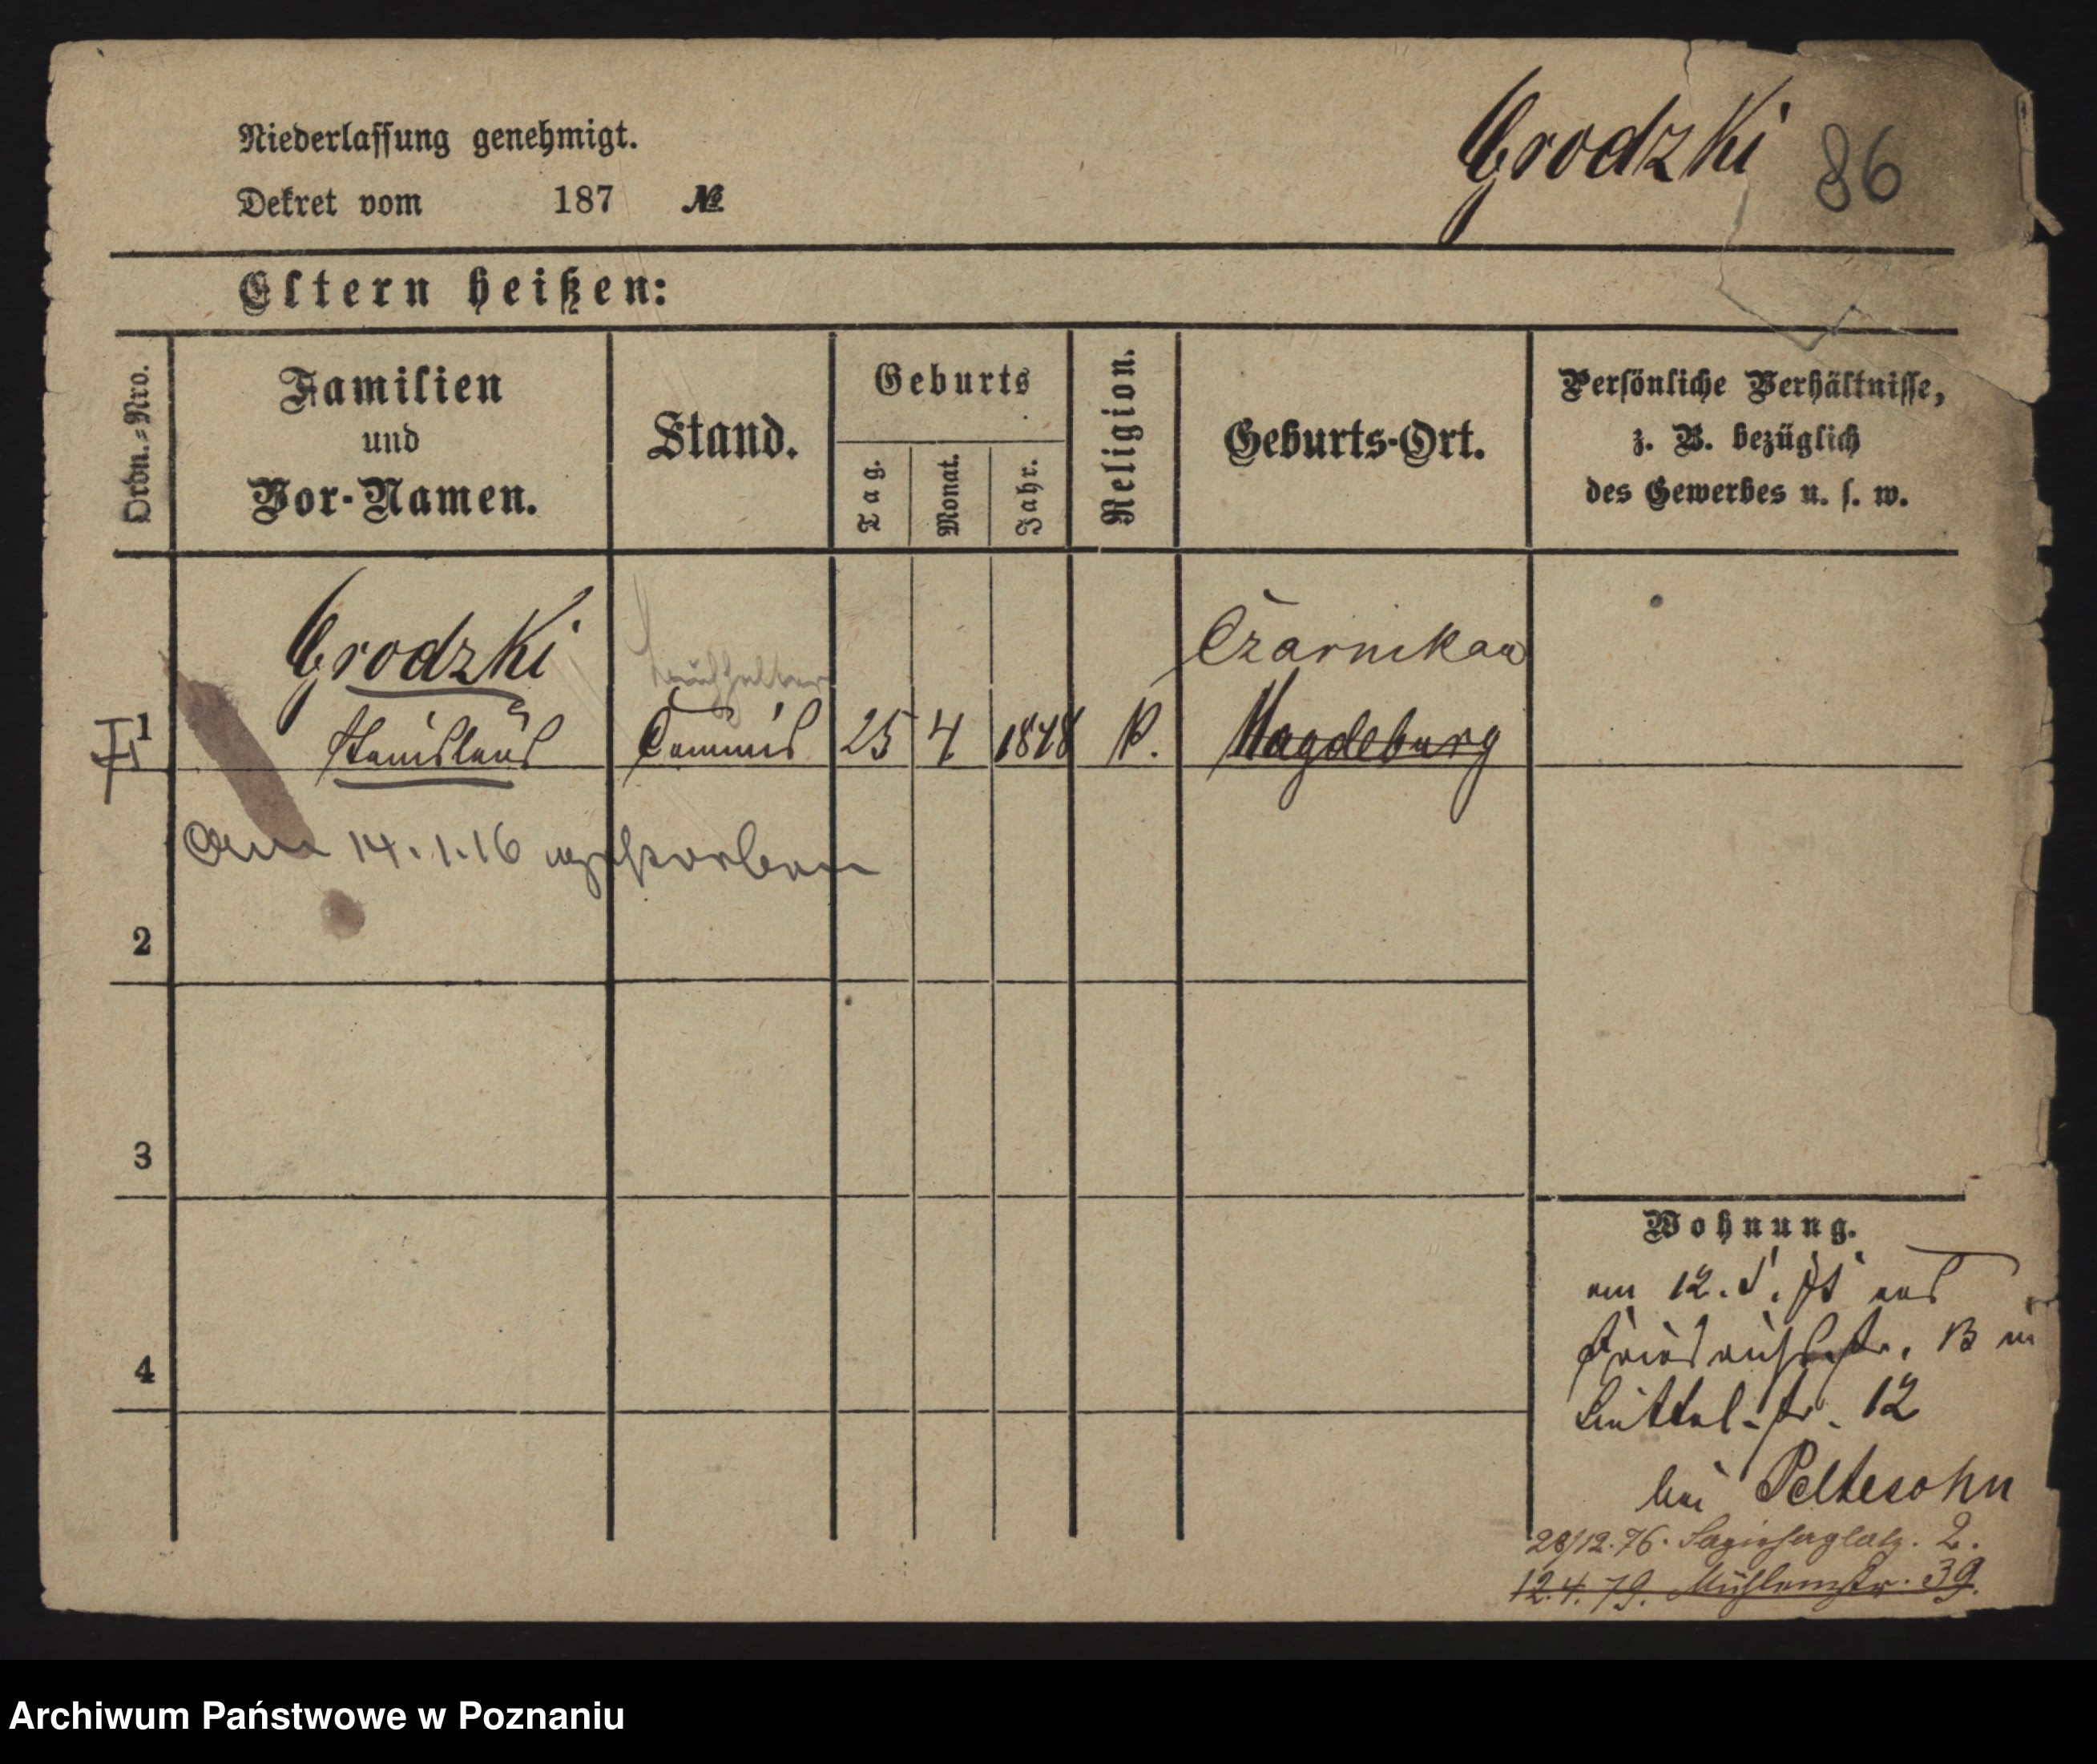 Niederlassung genehmigt.
Dekret vom 187 №
Grodzki 86
Eltern heißen:
Ordn.-Nro.
Familien
und
Vor-Namen.
Stand.
Geburts
Tag.
Monat.
Jahr.
Religion.
Geburts-Ort.
Persönliche Verhältnisse,
z. B. bezüglich
des Gewerbes u. s. w.
Grodzki
Buchhalter
Czarnikau
1 Stanislaus Commis 25 4 1848 K. Magdeburg
Am 14.1.16 verstorben
2
3
4
Wohnung.
am 12. aus
Friedrichstr. 13 in
12
bei Peltesohn
28/12.76. Sapiehaplatz. 2.
12.4.79. Mühlenstr. 39.
Archiwum Państwowe w Poznaniu